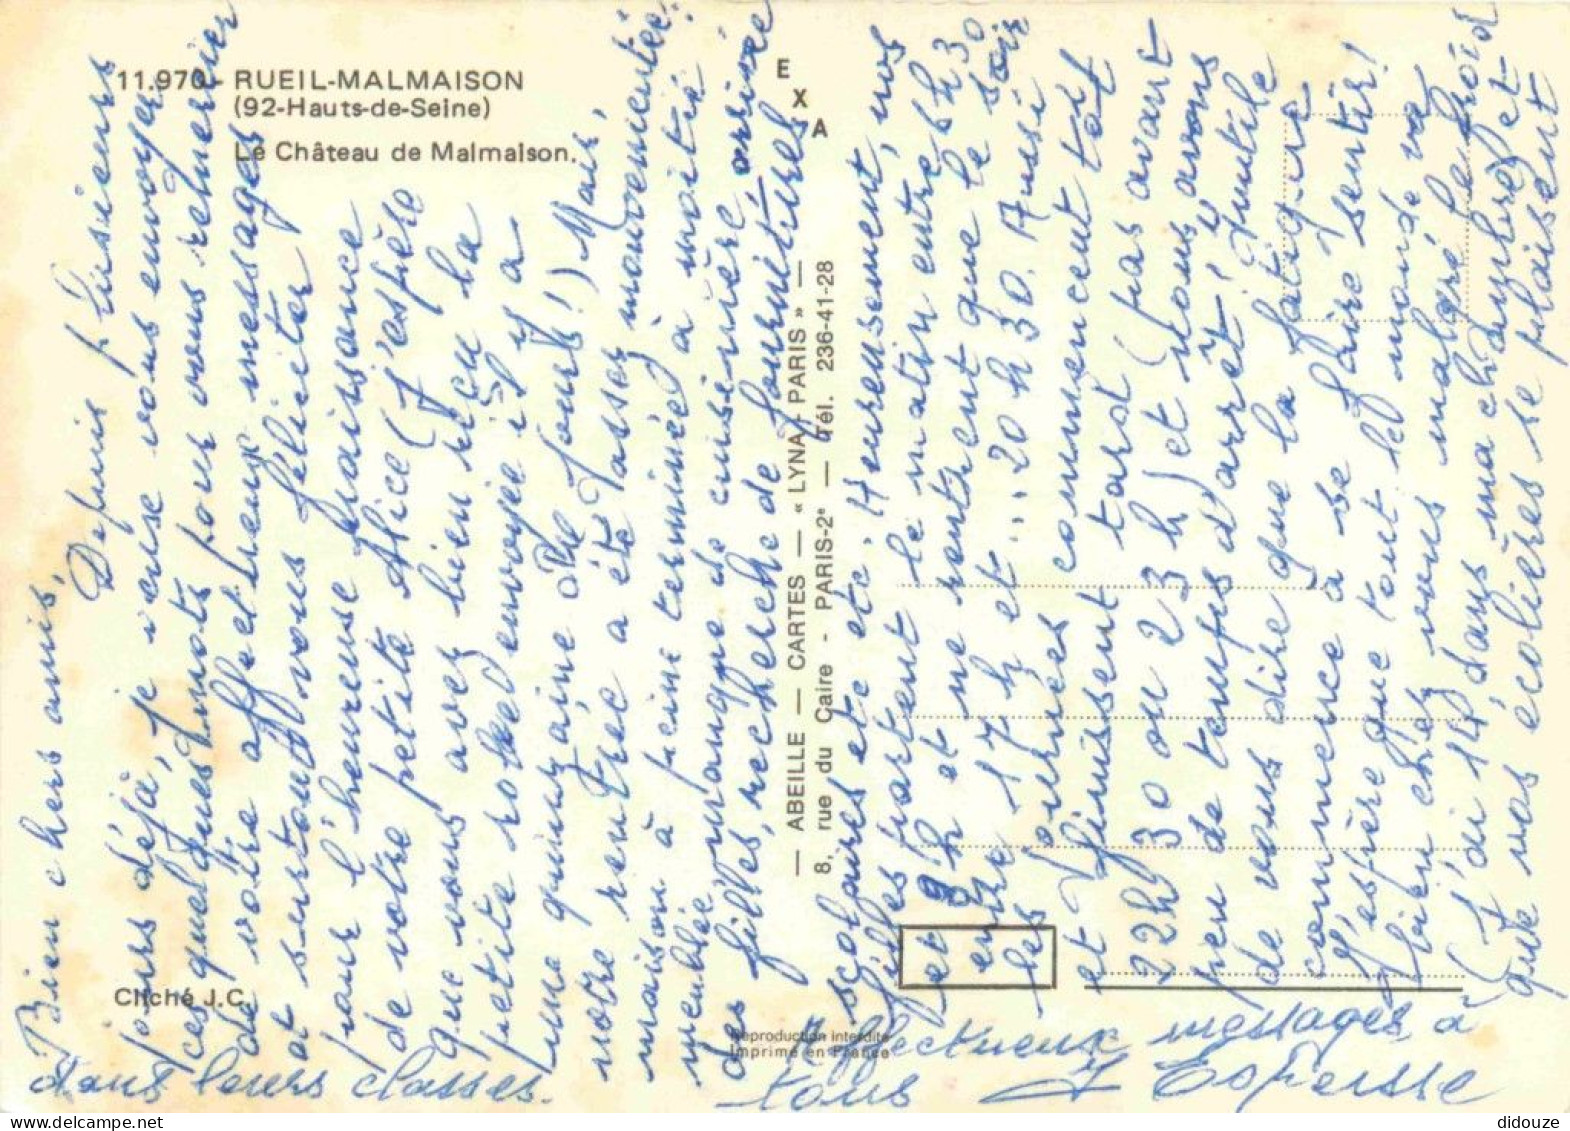 11.970 - RUEIL-MALMAISON
(92-Hauts-de-Seine)
Le Château de Malmaison.
E
X
A
— ABEILLE — CARTES — « LYNA - PARIS » —
8, rue du Caire - PARIS-2e — Tél. 236-41-28
Cliché J.C.
Reproduction interdite
Imprimé en France
Bien chers amis,
Depuis plusieurs
jours déjà, je veux vous envoyer
ces quelques mots pour vous remercier
de votre affectueux messages
et surtout vous féliciter
pour l'heureuse naissance
de votre petite Alice (J'espère
que vous avez bien reçu la
petite robe envoyée il y a
une quinzaine de jours !) Mais,
notre rentrée a été assez mouvementée :
maison à peine terminée, à moitié
meublée, manque de cuisinière, arrivée
des filles, recherche de fournitures
scolaires etc etc. Heureusement, nos
filles partent le matin entre 5 h 30
et 8 h et ne rentrent que le soir
entre 17 h et ... 20 h 30. Aussi
les journées commencent tôt
et finissent tard (pas avant
22h 30 ou 23 h) et nous avons
peu de temps d'arrêt ! Inutile
de vous dire que la fatigue
commence à se faire sentir !
J'espère que tout le monde va
bien chez vous malgré le froid
(J'ai 14° dans ma chambre) et
que vos écolières se plaisent
dans leurs classes.
Affectueux messages à
tous